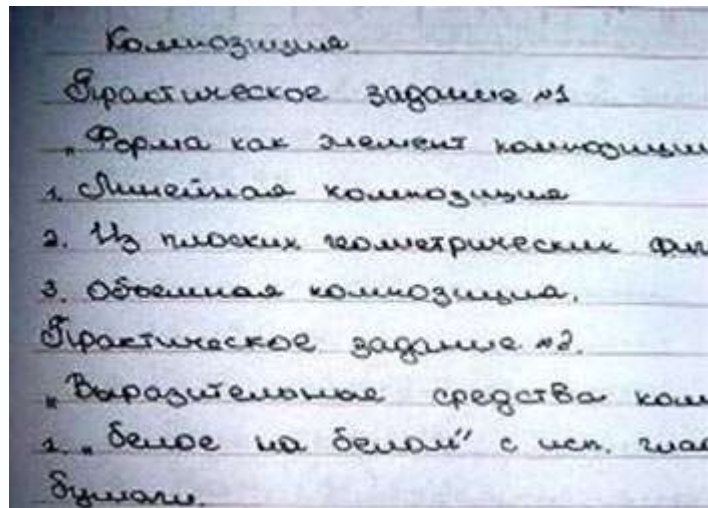 Композиция.
Практическое задание №1
„Форма как элемент композиции
1. Линейная композиция
2. Из плоских геометрических фиг
3. Объемная композиция.
Практическое задание №2.
„Выразительные средства ком
1. „белое на белом" с исп.
бумаги.